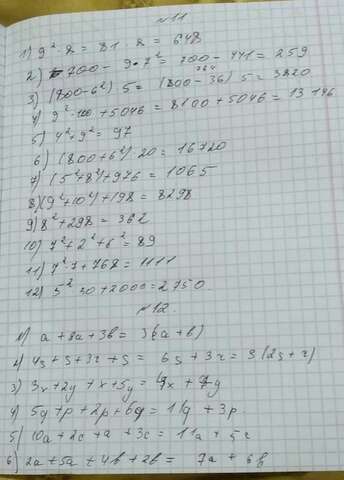 №11
1) 9² · 8 = 81 · 8 = 648
2) 700 - 9 · 7² = 700 - 441 = 259
3) (800 - 6²) · 5 = (800 - 36) 5 = 3820
764
4) 9² · 100 + 5046 = 8100 + 5046 = 13 146
5) 4² + 9² = 97
6) (800 + 6²) · 20 = 16720
7) (5² + 8²) + 976 = 1065
8) (9² + 10²) + 198 = 8298
9) 8² + 298 = 362
10) 7² + 2² + 6² = 89
11) 7² · 7 + 768 = 1111
12) 5² 30 + 2000 = 2750.
№12.
1) a + 8a + 3b = 3(6a + b)
2) 4s + s + 3r + s = 6s + 3r = 3(2s + r)
3) 3x + 2y + x + 5y = 4x + 7y
4) 5q + p + 2p + 6q = 11q + 3p.
5) 10a + 2c + a + 3c = 11a + 5c
6) 2a + 5a + 4b + 2b = 7a + 6b